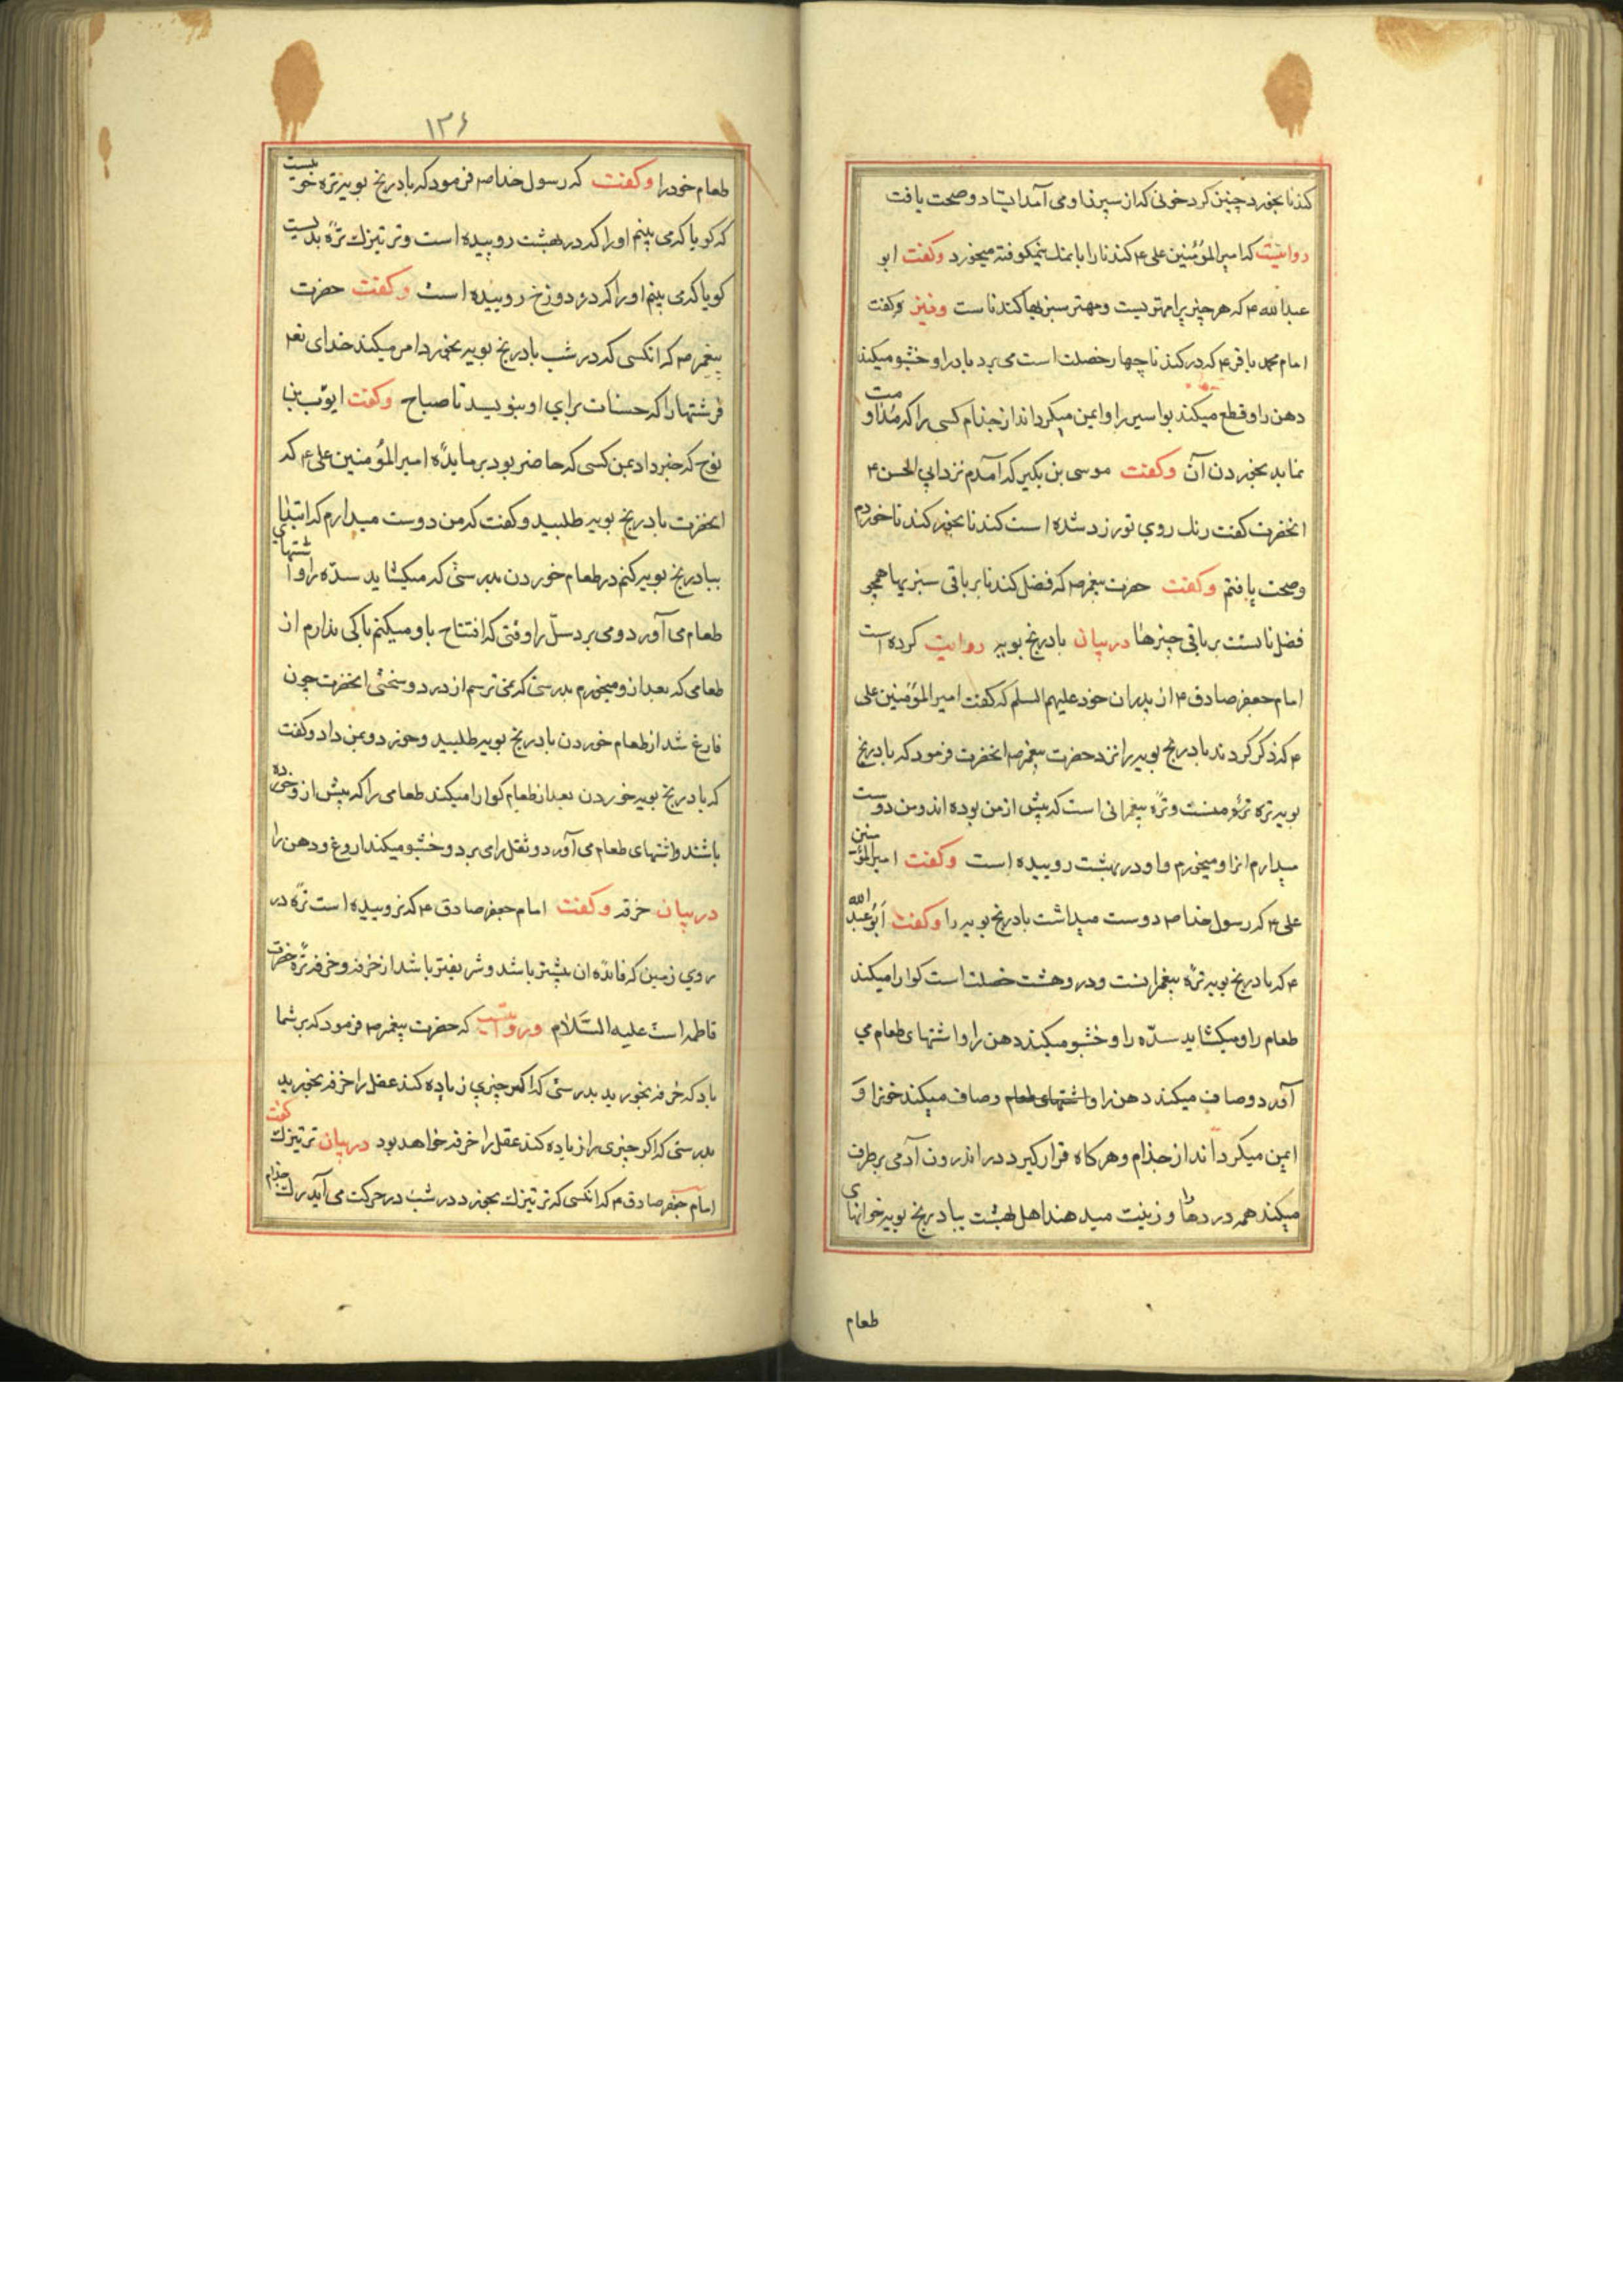 کندنا بخورد چنین کرد خونی که از سپرز او می آمد ایستاد و صحت یافت
روایتست که امیر المؤمنین علی ۴ کندنا را با نمک نیمکوفته میخورد وکفت ابو
عبد الله ۴ که هر چیز یرا مهتریست و مهتر سبزیها کندنا ست ونیز وکفت
امام محمد باقر ۴ که در کندنا چهار خصلت است می برد باد را و خشبو میکند
دهن را و قطع میکند بواسیر را و ایمن میکرداند از جذام کسی را که مداومت
نماید بخوردن آن وکفت موسی بن بکیر که آمدم نزد ابی الحسن ۴
انحضرت کفت رنک روی تو زرد شده است کندنا بخور کندنا خوردم
و صحت یافتم وکفت حضرت پیغمبر ص که فضل کندنا بر باقی سبزیها همچو
فضل نانست بر باقی چیزها در بیان بادرنج بویه روایت کرده است
امام جعفر صادق ۴ از پدران خود علیهم السلم که کفت امیر المؤمنین علی
۴ که ذکر کردند بادرنج بویه را نزد حضرت پیغمبر ص انحضرت فرمود که بادرنج
بویه تره منست و تره پیغمرانی است که پیش از من بوده اند و من دوست
میدارم انرا و میخورم و او در بهشت روییده است وکفت امیر المؤمنین
علی ۴ که رسول خدا ص دوست میداشت بادرنج بویه را وکفت ابو عبد الله
۴ که بادرنج بویه تره پیغمرانست و در و هشت خصلت است کوارا میکند
طعام را و میکشاید سدّه را و خشبو میکند دهن را و اشتهای طعام می
آورد و صاف میکند دهن را و اشتهای طعام و صاف میکند خونرا و
ایمن میکرداند از جذام و هرکاه قرار کیرد در اندرون آدمی برطرف
میکند همه دردها را و زینت میدهند اهل بهشت ببادرنج بویه خوانهای
طعام
۱۳۶
طعام خود را وکفت که رسول خدا ص فرمود که بادرنج بویه تره خوبیست
که کویا که می بینم او را که در بهشت روییده است و ترتیزک تره بدیست
کویا که می بینم او را که در دوزخ روییده است وکفت حضرت
پیغمر ص که انکسی که در شب بادرنج بویه بخورد امر میکند خدای تع
فرشتها را که حسنات برای او بنویسید تا صباح وکفت ایوب بن
نوح که خبر داد بمن کسی که حاضر بود بر مایده امیر المؤمنین علی ۴ که
انحضرت بادرنج بویه طلبید و کفت که من دوست میدارم که ابتدا
ببادرنج بویه کنم در طعام خوردن بدرستی که میکشاید سدّه را و اشتهای
طعام می آورد و می برد سلّ را وقتی که افتتاح باو میکنم باکی ندارم از
طعامی که بعد از و میخورم بدرستی که نمی ترسم از درد و سختی انحضرت چون
فارغ شد از طعام خوردن بادرنج بویه طلبید و خورد و بمن داد و کفت
که بادرنج بویه خوردن بعد از طعام کوارا میکند طعامی را که پیش از و خورده
باشند و اشتهای طعام می آورد و ثقل را می برد و خشبو میکند اروغ و دهن را
در بیان خرفه وکفت امام جعفر صادق ۴ که نروییده است تره در
روی زمین که فایده ان بیشتر باشد و شریفتر باشد از خرفه و خرفه تره حضرت
فاطمه است علیه السّلام وروایتست که حضرت پیغمر ص فرمود که بر شما
باد که خرفه بخورید بدرستی که اکر چیزی زیاده کند عقل را خرفه بخورید
بدرستی که اکر چیزی را زیاده کند عقل را خرفه خواهد بود در بیان ترتیزک کفت
امام جعفر صادق ۴ که انکسی که ترتیزک بخورد در شب در حرکت می آید رک جذام